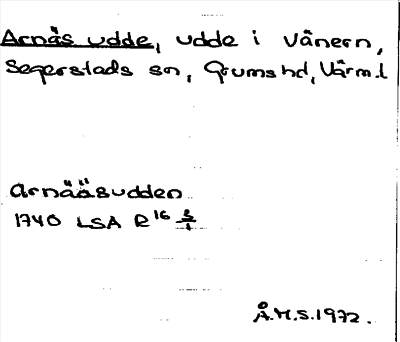 Arnäs udde, udde i Vänern,
Segerstads sn, Grums hd, Värm.l
Arnääsudden
1740 LSA R16 3/1
Å.H.S.1972.